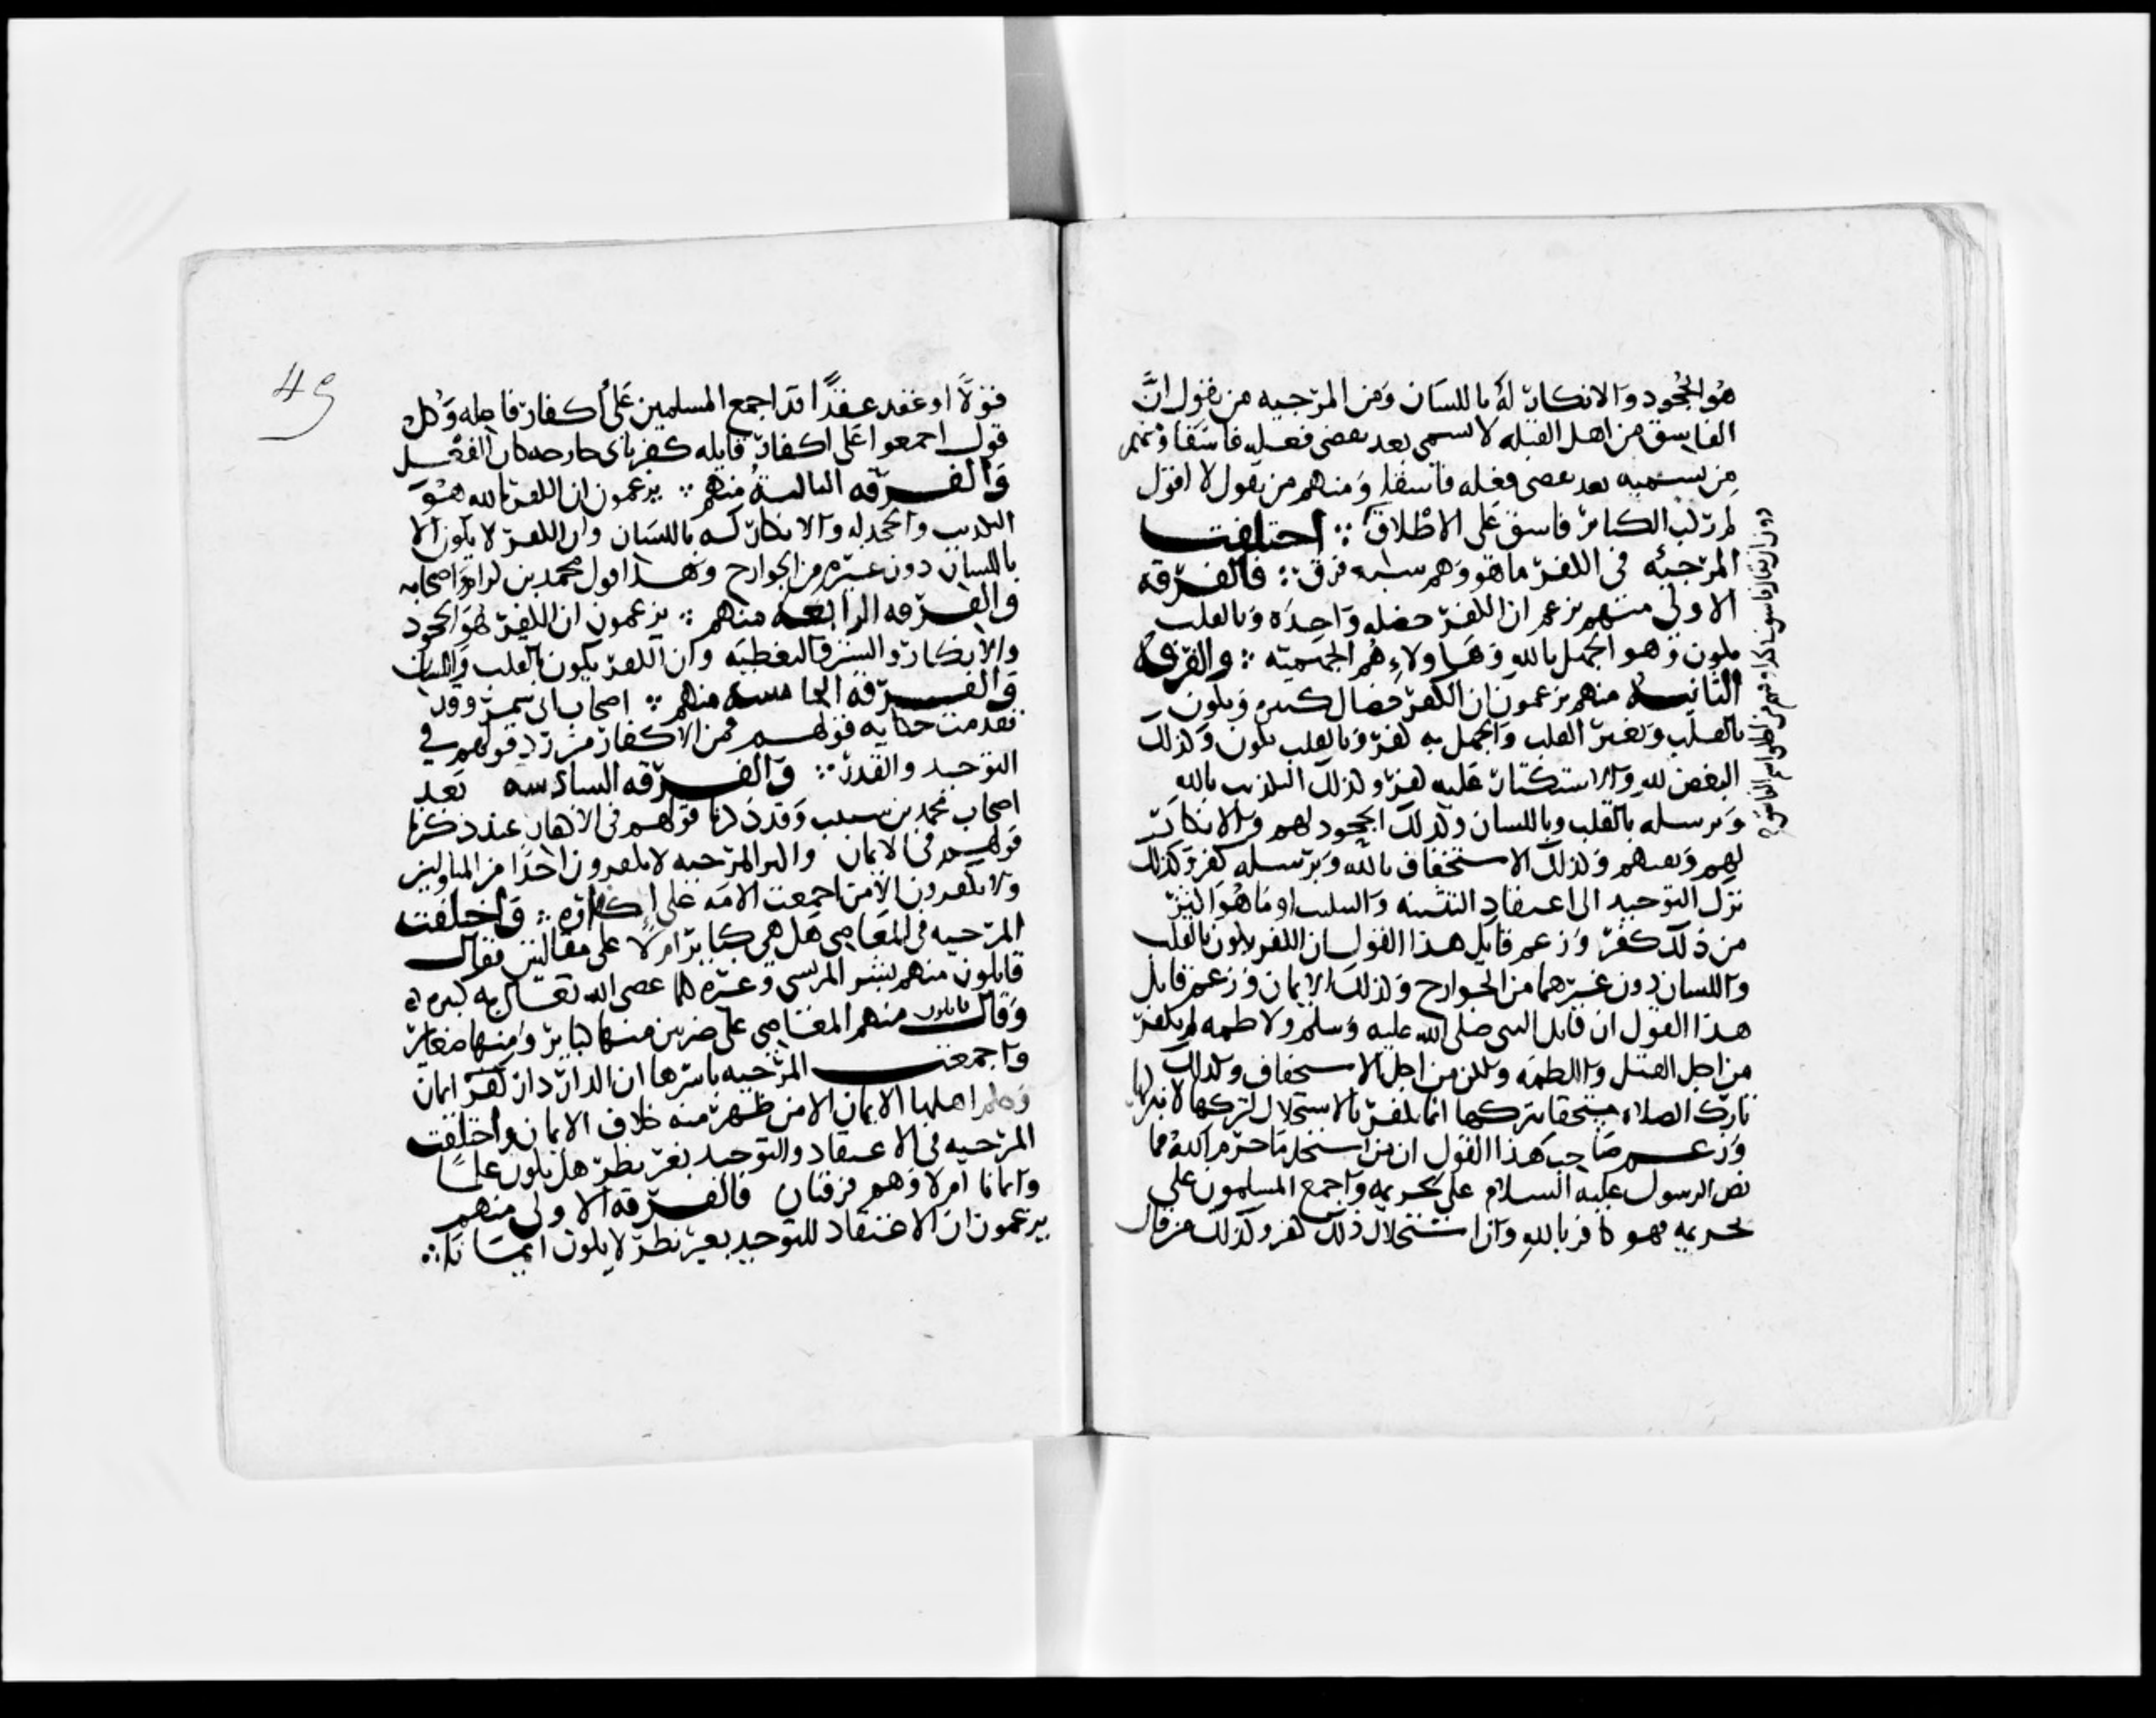 هو الجحود والانكار له باللسان ومن المرجيه من يقول ان
الفاسق من اهل القبله لا يسمى بعد تقضى فعله فاسقا ومنهم
من يسميه بعد تقضى فعله فاسقا ومنهم من يقول لا اقول
لمرتكب الكبائر فاسق على الاطلاق ∴ اختلفت
دون ان يقال فاسق
المرجئه فى الكفر ما هو وهم سبع فرق ∴ فالفرقه
الاولى منهم يزعم ان الكفر خصله واحده وبالقلب
يكون وهو الجهل بالله وهاولاء هم الجهميه ∴ والفرقه
الثانيه منهم يزعمون ان الكفر خصال كثيره ويكون
بالقلب وبغير القلب والجهل به كفر وبالقلب يكون وكذلك
البغض لله والاستكبار عليه كفر وكذلك التكذيب بالله
وبرسله بالقلب وباللسان وكذلك الجحود لهم والانكار
لهم ونفيهم وكذلك الاستخفاف بالله وبرسله كفر وكذلك
ترك التوحيد الى اعتقاد التثنيه والتثليث او ما هو اكثر
من ذلك كفر وزعم قايل هذا القول ان الكفر يكون بالقلب
واللسان دون غيرهما من الجوارح وكذلك الايمان وزعم قايل
هذا القول ان قاتل النبى صلى الله عليه وسلم ولاطمه لم يكفر
من اجل القتل واللطمه ولكن من اجل الاستخفاف وكذلك
تارك الصلاه مستحقا بتركها انما يكفر بالاستحلال لتركها لا بتركها
وزعم صاحب هذا القول ان من استحل ما حرم الله مما
نص الرسول عليه السلام على تحريمه واجمع المسلمون على
تحريمه فهو كافر بالله وان استحلال ذلك كفر وكذلك من قال
49
قولا او عقد عقدا قد اجمع المسلمين على اكفار فاعله وكل
قول اجمعوا على اكفار قايله كفر باى جارحه كان الفعل
والفرقه الثالثه منهم ∴ يزعمون ان الكفر بالله هو
التكذيب والجحد له والانكار له باللسان وان الكفر لا يكون الا
باللسان دون غيره من الجوارح وهذا قول محمد بن كرام واصحابه
والفرقه الرابعه منهم ∴ يزعمون ان الكفر هو الجحود
والانكار والستر والتغطيه وان الكفر يكون بالقلب واللسان
والفرقه الخامسه منهم ∴ اصحاب ابى شمر وقد
تقدمت حكايه قولهم فى الاكفار من رد قولهم فى
التوحيد والقدر ∴ والفرقه السادسه
اصحاب محمد بن شبيب وقد ذكرنا قولهم فى الاكفار عند ذكرنا
قولهم فى الايمان واكثر المرجيه لا يكفرون احدا من المتاولين
ولا يكفرون الا من اجمعت الامه على اكفاره ∴ واختلفت
المرجيه فى المعاصى هل هى كبائر ام لا على مقالتين فقال
قايلون منهم بشر المريسى وغيره كلما عصى الله تعالى به كبيره
وقال قايلون منهم المعاصى على ضربين منها كبائر ومنها صغائر
واجمعت المرجيه باسرها ان الدار دار ايمان
وحكم اهلها الايمان الا من ظهر منه خلاف الايمان واختلفت
المرجيه فى الاعتقاد والتوحيد بغير نظر هل يكون علما
وايمانا ام لا وهم فرقتان فالفرقه الاولى منهم
يزعمون ان الاعتقاد للتوحيد بغير نظر لا يكون ايمانا ∴